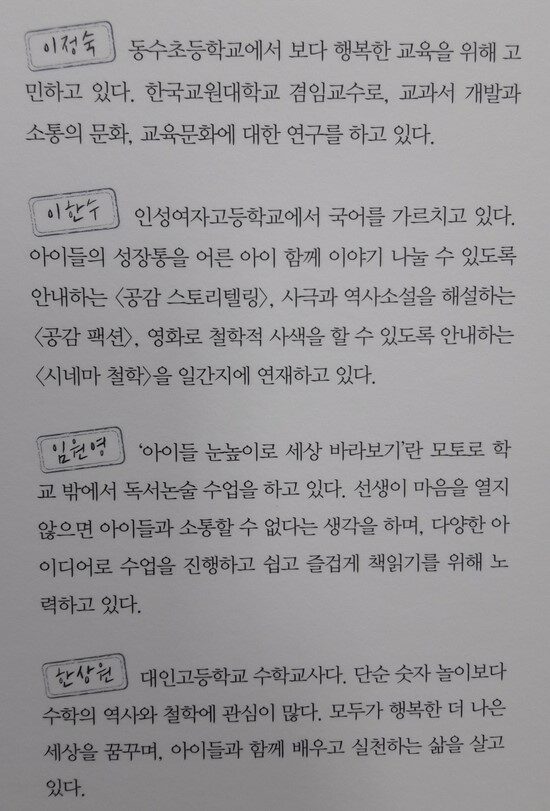 이정숙 동수초등학교에서 보다 행복한 교육을 위해 고
민하고 있다. 한국교원대학교 겸임교수로, 교과서 개발과
소통의 문화, 교육문화에 대한 연구를 하고 있다.
이한수 인성여자고등학교에서 국어를 가르치고 있다.
아이들의 성장통을 어른 아이 함께 이야기 나눌 수 있도록
안내하는 〈공감 스토리텔링〉, 사극과 역사소설을 해설하는
〈공감 팩션〉, 영화로 철학적 사색을 할 수 있도록 안내하는
〈시네마 철학〉을 일간지에 연재하고 있다.
임원영 ‘아이들 눈높이로 세상 바라보기’란 모토로 학
교 밖에서 독서논술 수업을 하고 있다. 선생이 마음을 열지
않으면 아이들과 소통할 수 없다는 생각을 하며, 다양한 아
이디어로 수업을 진행하고 쉽고 즐겁게 책읽기를 위해 노
력하고 있다.
한상원 대인고등학교 수학교사다. 단순 숫자 놀이보다
수학의 역사와 철학에 관심이 많다. 모두가 행복한 더 나은
세상을 꿈꾸며, 아이들과 함께 배우고 실천하는 삶을 살고
있다.